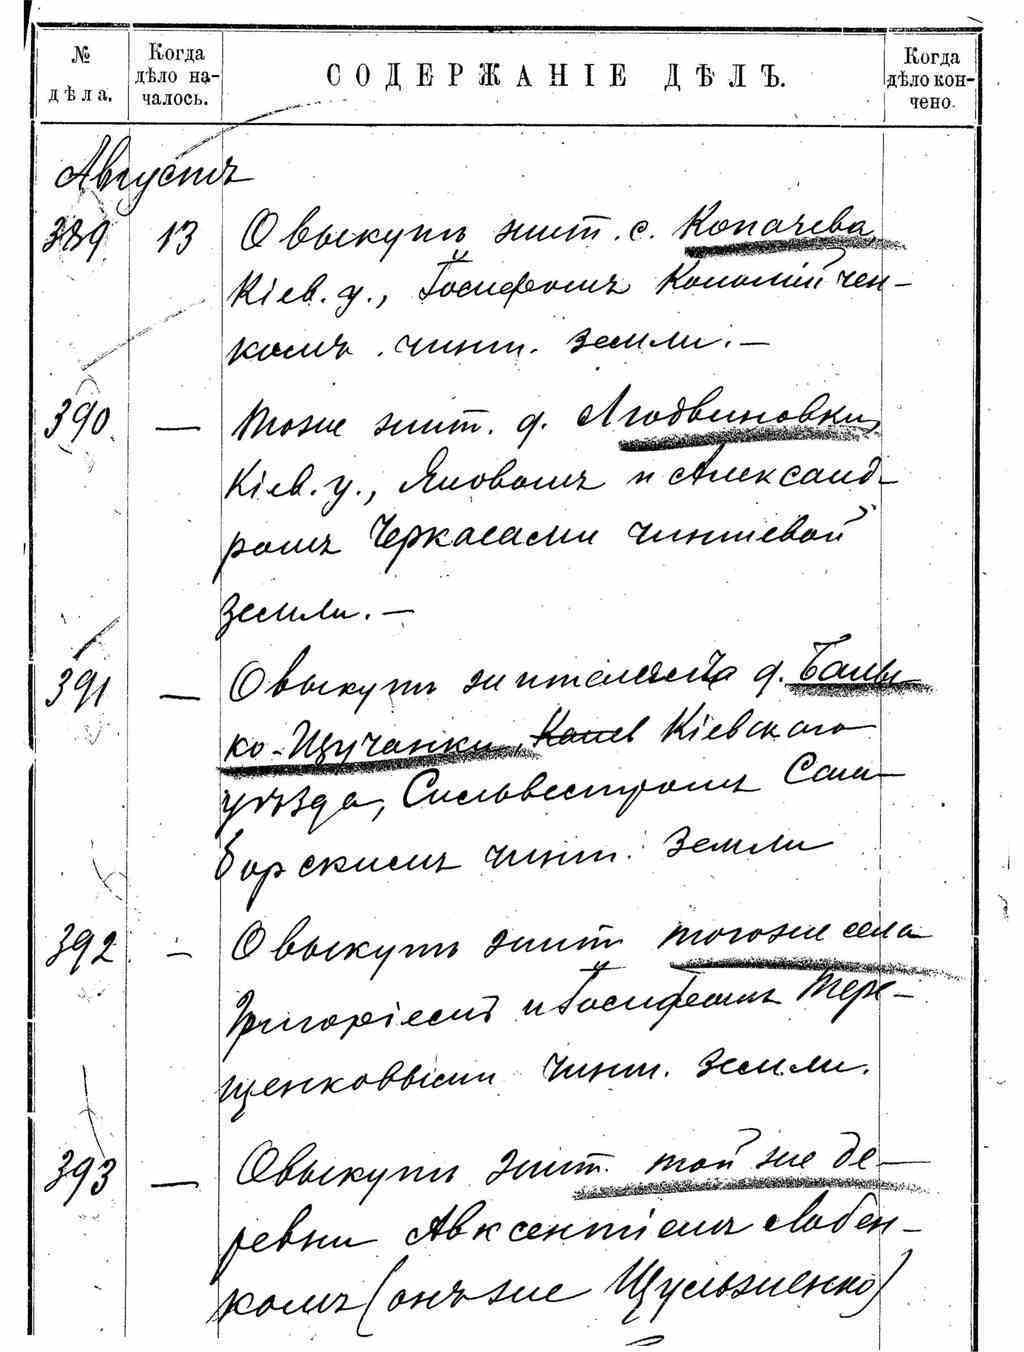 № дѣла.
Когда дѣло началось.
СОДЕРЖАНІЕ ДѢЛЪ.
Когда дѣло кончено.
Августъ
389 13 О выкупѣ жит. с. Копачева,
Кіев. у., Іосифомъ Коломійчен-
комъ чинш. земли.—
390 — Тоже жит. д. Людвиновки,
Кіев. у., Яковомъ и Александ-
ромъ Черкасами чиншевой
земли.—
391 — О выкупѣ жителемъ д. Балы-
ко-Щучанки, Канев Кіевскаго
уѣзда, Сильвестромъ Сам-
борскимъ чинш. земли
392 — О выкупѣ жит. того же села
Григоріемъ и Іосифомъ Тере-
щенковыми чинш. земли.
393 — О выкупѣ жит. той же де-
ревни Авксентіемъ Лобен-
комъ (онъ же Щульженко)